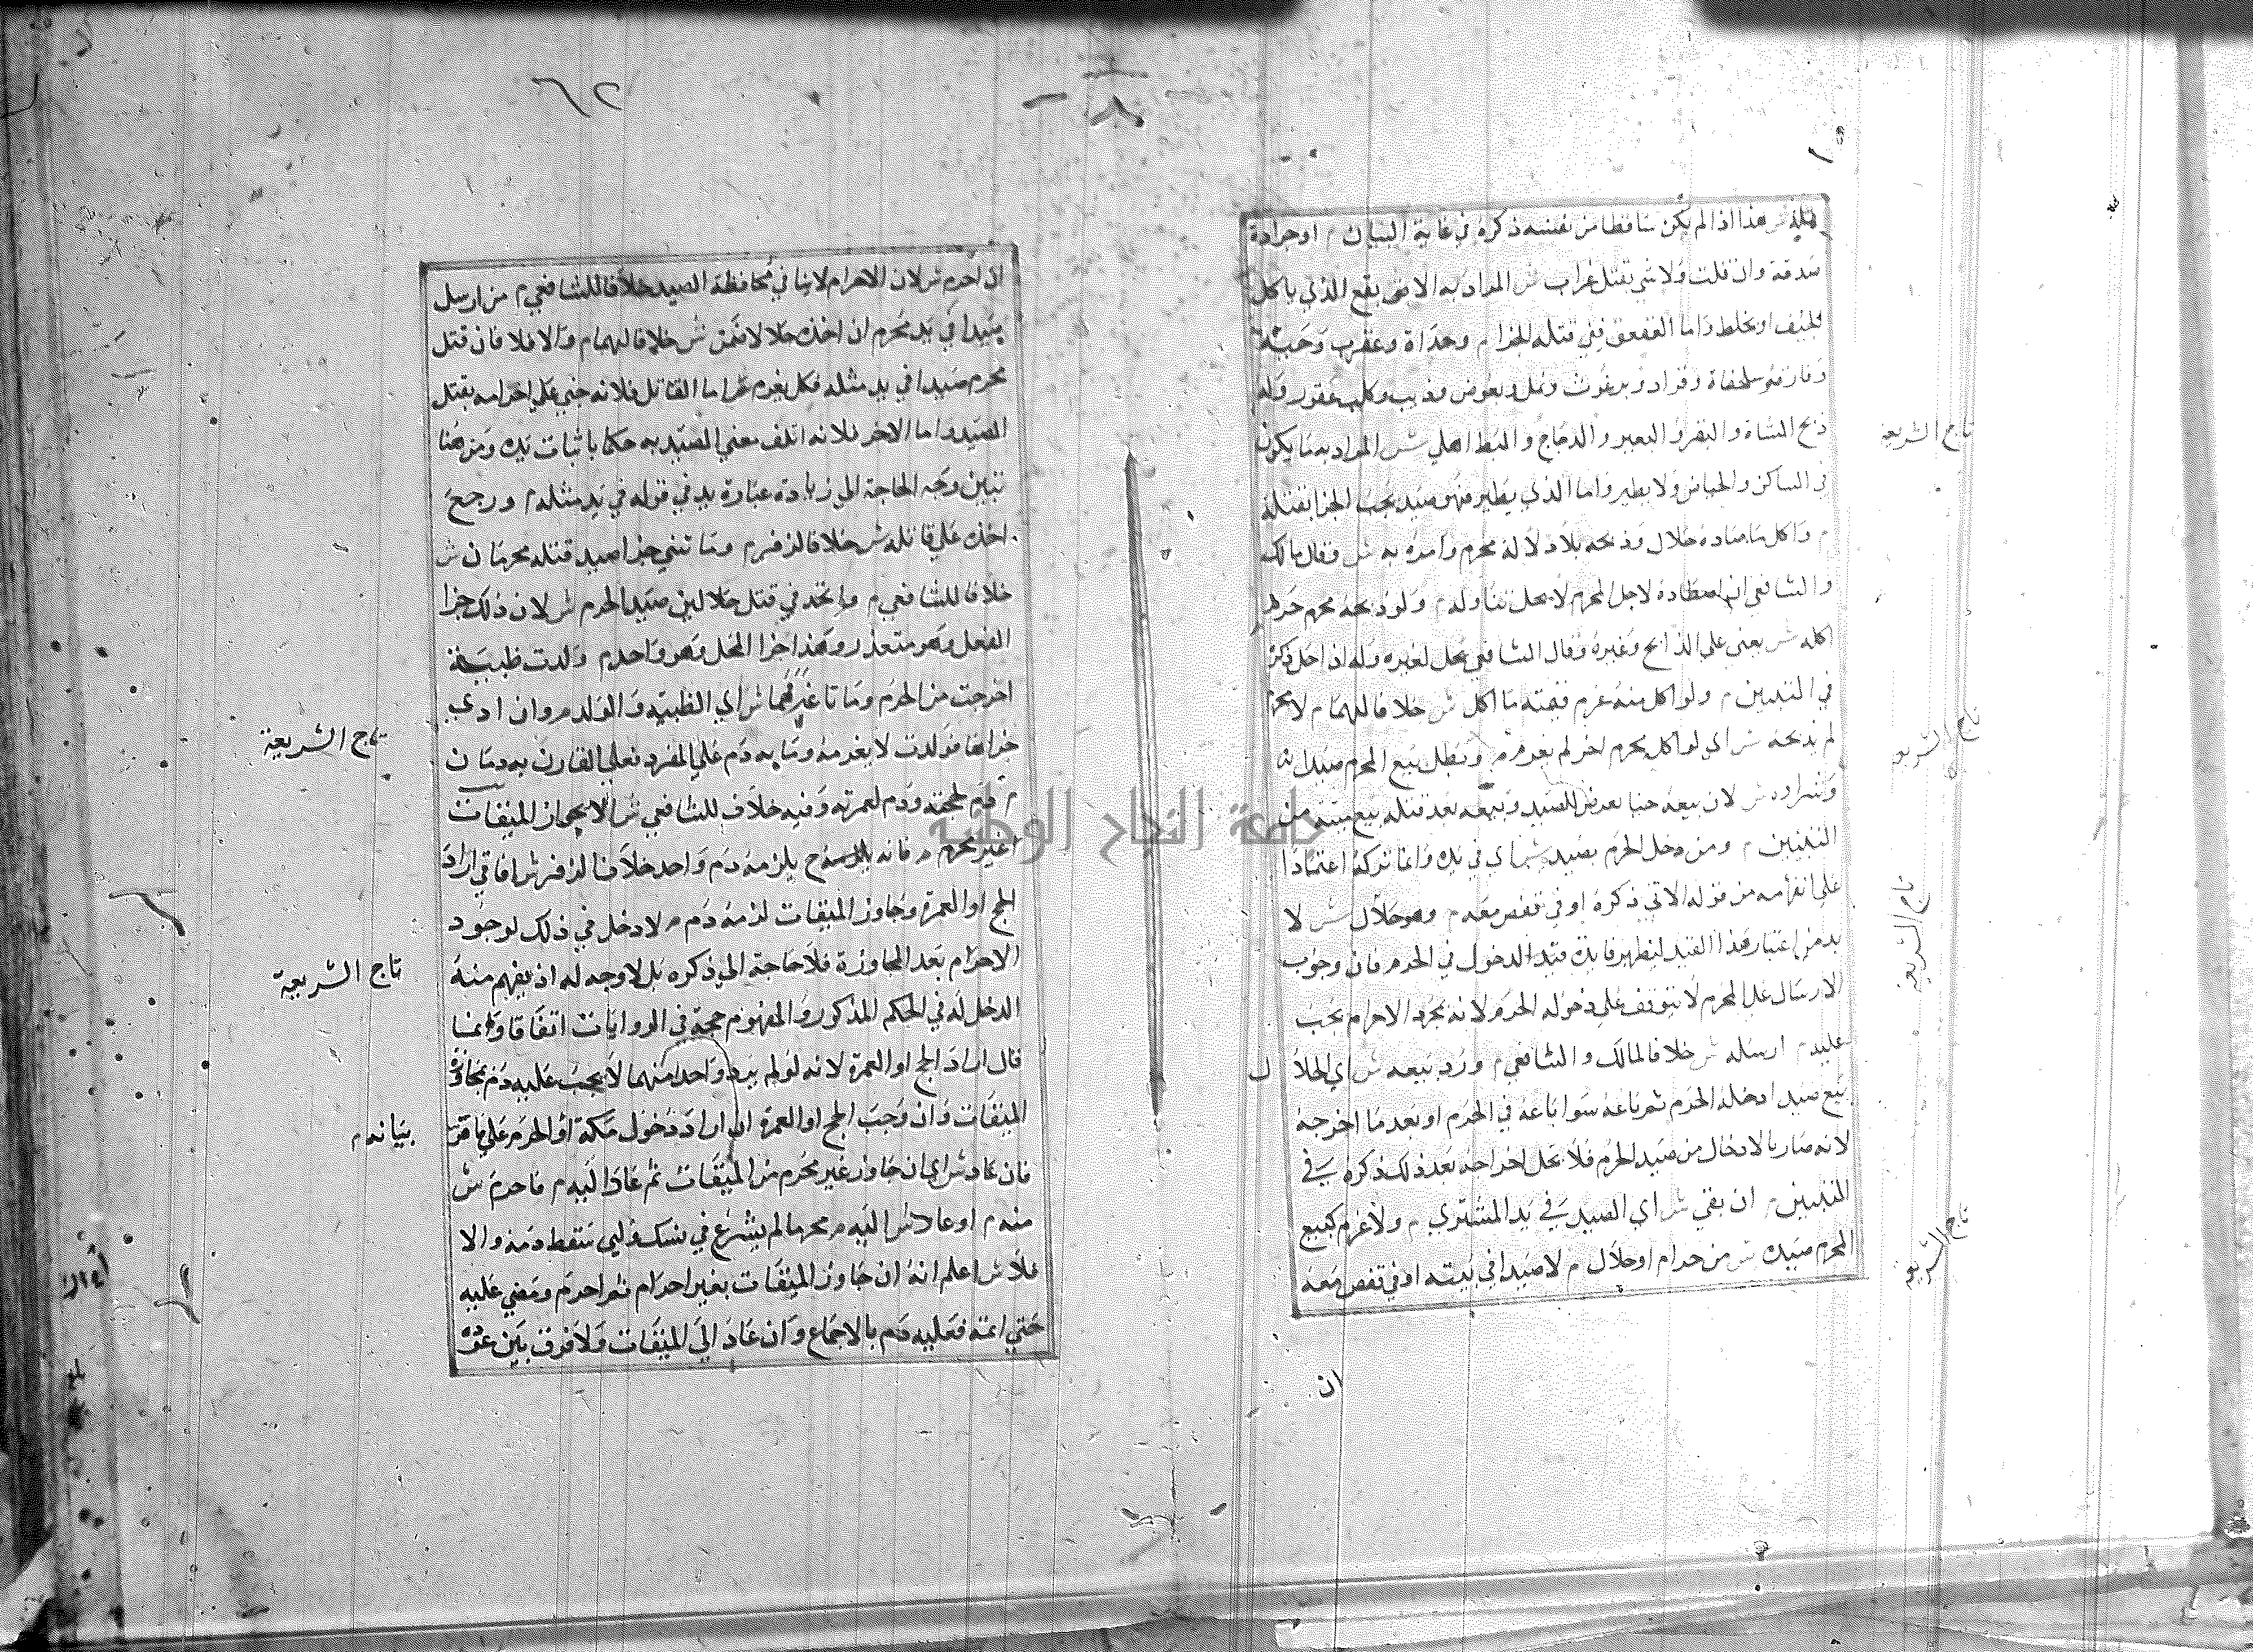 قملة ش هذا اذا لم يكن ساقطا من نفسه ذكره في غاية البيان م او جرادة
صدقة وان قلت ولا شي بقتل غراب ش المراد به الابقع الذي ياكل
الجيف او يخلط واما العقعق ففي قتله الجزا م وحداة وعقرب وحية
وفارة وسلحفاة وقراد وبرغوث ونمل وبعوض وذيب وكلب عقور وله
ذبح الشاة والبقر والبعير والدجاج والبط اهلي ش المراد به ما يكون
في المساكن والحياض ولا يطير واما الذي يطير فهو صيد يجب الجزا بقتله
م واكل ما صاده حلال وذبحه بلا دلالة محرم وامره به ش وقال مالك
والشافعي ان اصطاده لاجل المحرم لا يحل تناوله م ولو ذبحه محرم حرم
اكله ش يعني علي الذابح وغيره وقال الشافعي يحل لغيره وله اذا حل ذكره
في التبيين م ولو اكل منه غرم قيمة ما اكل ش خلافا لهما م لا محرم
لم يذبحه ش اي لو اكل محرم اخر لم يغرم م وبطل بيع المحرم صيدا
وشراوه ش لان بيعه حيا تعرض للصيد وبيعه بعد قتله بيع ميتة من
التبيين م ومن دخل الحرم بصيد ش اي في يده وانما تركه اعتمادا
علي انفهامه من قوله الاتي ذكره او في قفص معه م وهو حلال ش لا
بد من اعتبار هذا القيد ليظهر فايدة قيد الدخول في الحرم فان وجوب
الارسال علي المحرم لا يتوقف علي دخوله الحرم لانه بمجرد الاحرام يجب
عليه م ارسله ش خلافا لمالك والشافعي م ورد بيعه ش اي الحلال
بيع صيد ادخله الحرم ثم باعه سوا باعه في الحرم او بعد ما اخرجه
لانه صار بالادخال من صيد الحرم فلا يحل اخراجه بعد ذلك ذكره في
التبيين م ان بقي ش اي الصيد في يد المشتري م والا غرم كبيع
المحرم صيده ش من حرام او حلال م لا صيدا في بيته او في قفص معه
ان
تاج الشريعة
تاج الشريعة
تاج الشريعة
تاج الشريعة
٦٢
ان احرم ش لان الاحرام لا ينافي محافظة الصيد خلافا للشافعي م من ارسل
صيدا في يد محرم ان اخذه حلالا ضمن ش خلافا لهما م والا فلا فان قتل
محرم صيدا في يد مثله فكل يغرم ش اما القاتل فلانه جني علي احرامه بقتل
الصيد واما الاخر فلانه اتلف معني الصيد به حكما باثبات يده ومن هنا
تبين وجه الحاجة الي زيادة عبارة يد في قوله في يد مثله م ورجع
اخذه علي قاتله ش خلافا لزفر م وما تثني جزا صيد قتله محرمان ش
خلافا للشافعي م واتحد في قتل حلالين صيد الحرم ش لان ذلك جزا
الفعل وهو متعدد وهذا جزا المحل وهو واحد م ولدت ظبية
اخرجت من الحرم وماتا غرمهما ش اي الظبية والولد م وان ادي
جزاها فولدت لا يغرمه وما به دم علي المفرد فعلي القارن به دمان
م دم لحجته ودم لعمرته وفيه خلاف للشافعي ش الا بجواز الميقات
غير محرم م فانه ح يلزمه دم واحد خلافا لزفر ش افاقي اراد
الحج او العمرة وجاوز الميقات لزمه دم م لا دخل في ذلك لوجود
الاحرام بعد المجاوزة فلا حاجة الي ذكره بل لا وجه له اذ يفهم منه
الدخل له في الحكم المذكور والمفهوم حجة في الروايات اتفاقا وانما
قال اراد الحج او العمرة لانه لو لم يرد واحدا منهما لا يجب عليه دم بمجاوزة
الميقات وان وجب الحج او العمرة ان اراد دخول مكة او الحرم علي ما مر
بيانه م
فان عاد ش اي ان جاوز غير محرم من الميقات ثم عاد اليه م فاحرم ش
منه م او عاد ش اليه م محرما لم يشرع في نسك ولبي سقط دمه والا
فلا ش اعلم انه ان جاوز الميقات بغير احرام ثم احرم ومضي عليه
حتي اتمه فعليه دم بالاجماع وان عاد الي الميقات ولا فرق بين عوده
تاج الشريعة
تاج الشريعة
جامعة النجاح الوطنية